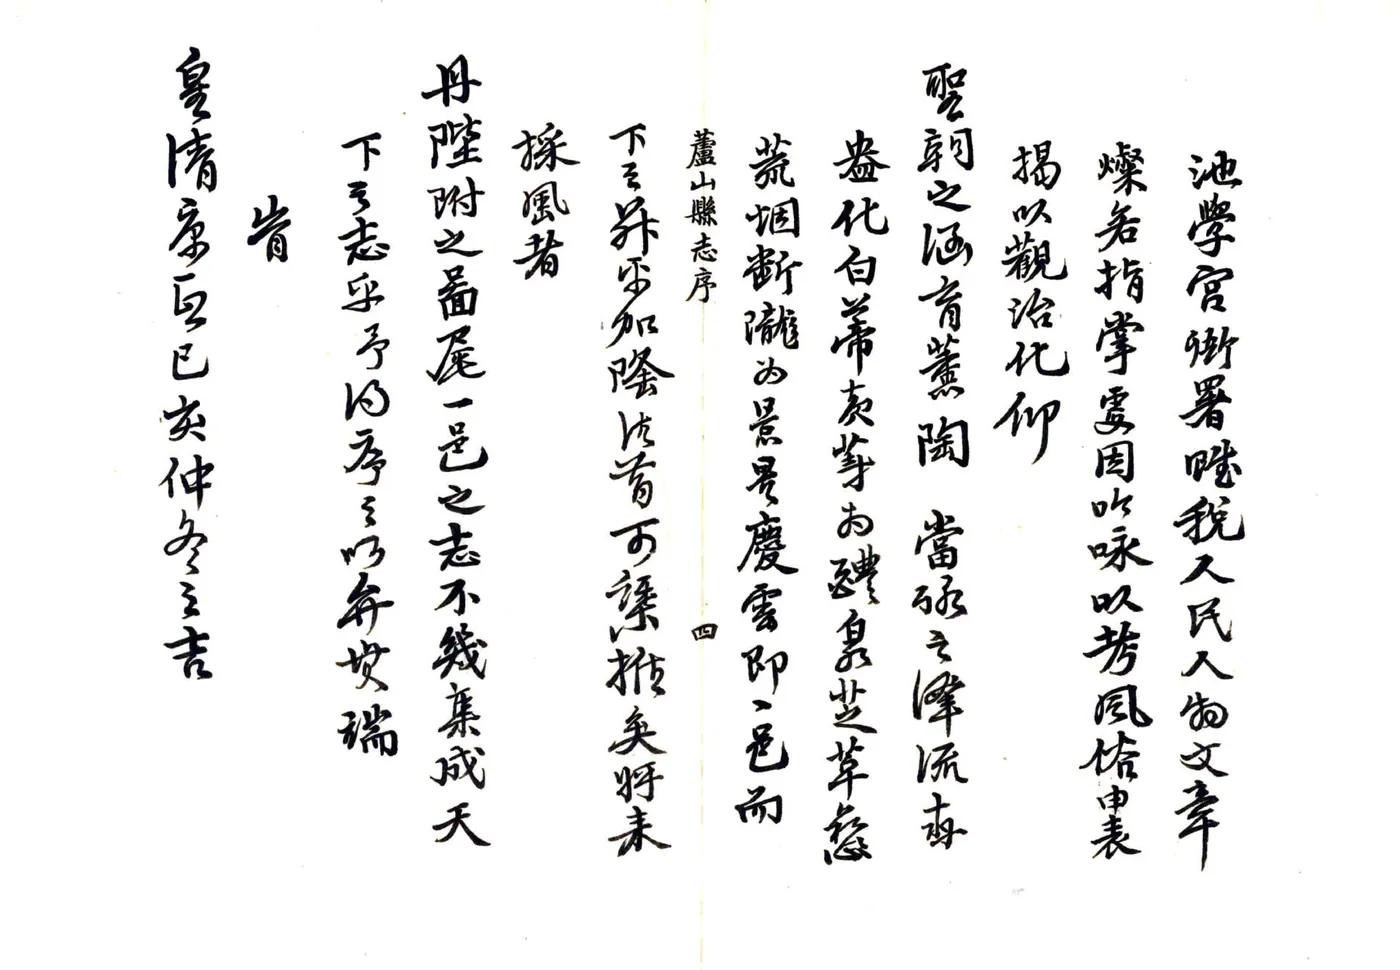 池學宮衙署賦稅人民人物文章
燦若指掌要因吟咏以考風俗申表
揭以觀治化仰
聖朝之涵育薰陶 當
之澤流
盎化白
為醴泉芝草慈
荒烟斷隴為景星慶雲即一邑而
蘆山縣志序
四
下之昇平加隆
首可類推矣將来
採風者
丹陛附之圖
尾一邑之志不幾集成天
下之志乎予乃序之以弁
端
皆
皇清康
仲冬之吉